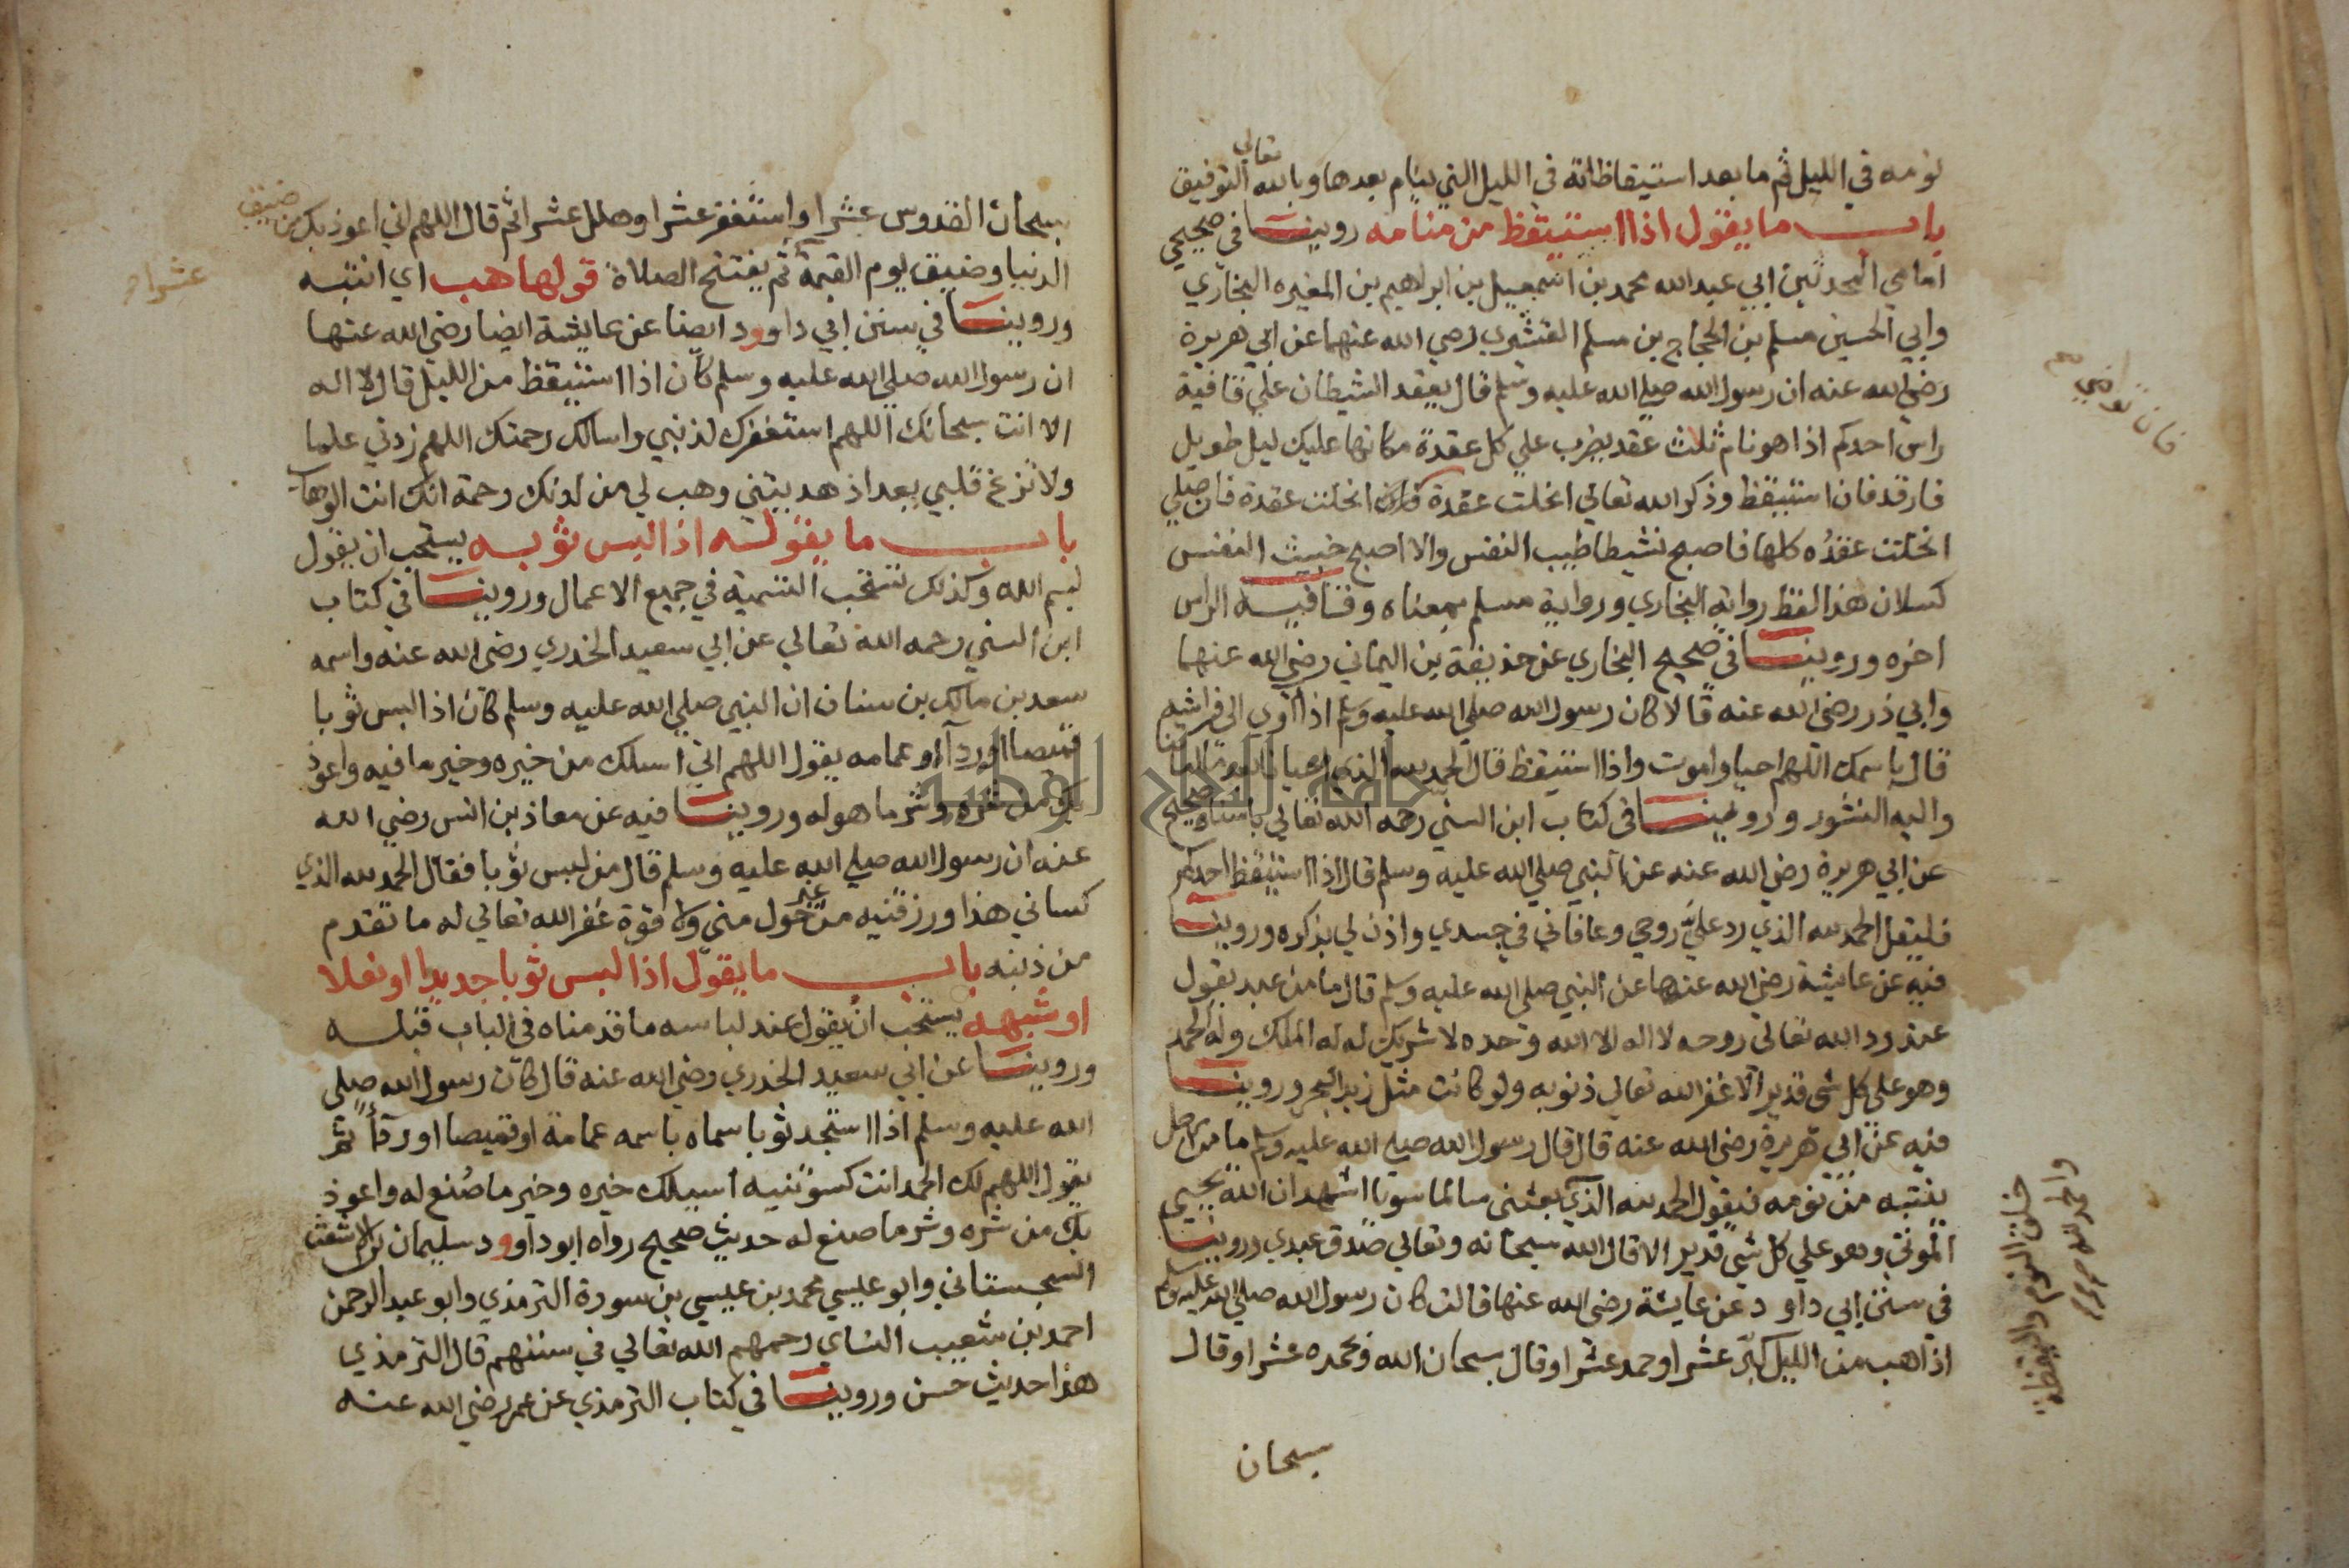 نومه في الليل ثم ما بعد استيقاظاته في الليل التي ينام بعدها وبالله تعالي التوفيق
باب ما يقول اذا استيقظ من منامه روينا في صحيحي
امامي المحدثين ابي عبد الله محمد بن اسمعيل بن ابراهيم بن المغيره البخاري
وابي الحسين مسلم بن الحجاج بن مسلم القشيري رضي الله عنهما عن ابي هريرة
رضي الله عنه ان رسول الله صلي الله عليه وسلم قال يعقد الشيطان علي قافية
راس احدكم اذا هو نام ثلاث عقد يضرب علي كل عقدة مكانها عليك ليل طويل
فارقد فان استيقظ وذكر الله تعالي انحلت عقدة انحلت عقدة فان صلي
انحلت عقده كلها فاصبح نشيطا طيب النفس والا اصبح خبيث النفس
كسلان هذا لفظ رواية البخاري ورواية مسلم بمعناه وقافيه الراس
اخره وروينا في صحيح البخاري عن حذيفة بن اليماني رضي الله عنهما
وابي ذر رضي الله عنه قالا كان رسول الله صلي الله عليه وسلم اذا اوي الي فراشه
قال باسمك اللهم احيا واموت واذا استيقظ قال الحمد لله الذي احيانا بعد ما اماتنا
واليه النشور وروينا في كتاب ابن السني رحمه الله تعالي باسناد صحيح
عن ابي هريرة رضي الله عنه عن النبي صلي الله عليه وسلم قال اذا استيقظ احدكم
فليقل الحمد لله الذي رد عليَّ روحي وعافاني في جسدي واذن لي بذكره وروينا
فيه عن عايشة رضي الله عنها عن النبي صلي الله عليه وسلم قال ما من عبد يقول
عند رد الله تعالي روحه لا اله الا الله وحده لا شريك له له الملك وله الحمد
وهو علي كل شي قدير الا غفر الله تعالي ذنوبه ولو كانت مثل زبد البحر وروينا
فيه عن ابي هريرة رضي الله عنه قال قال رسول الله صلي الله عليه وسلم ما من رجل
ينتبه من نومه فيقول الحمد لله الذي بعثني سالما سويا اشهد ان الله يحيي
الموتي وهو علي كل شي قدير الا قال الله سبحانه وتعالي صدق عبدي وروينا
في سنن ابي داود عن عايشة رضي الله عنها قالت كان رسول الله صلي الله عليه وسلم
اذا هب من الليل كبّر عشرا وحمد عشرا وقال سبحان الله وبحمده عشرا وقال
سبحان
فان توضي
خلق النوم واليقظة
والحمد لله
سبحان القدوس عشرا واستغفر عشرا وهلل عشرا ثم قال اللهم اني اعوذ بك من ضيق
الدنيا وضيق يوم القيمة ثم يفتتح الصلاة قولها هب اي انتبه
عشرا
وروينا في سنن ابي داوود ايضا عن عايشة ايضا رضي الله عنها
ان رسول الله صلي الله عليه وسلم كان اذا استيقظ من الليل قال لا اله
الا انت سبحانك اللهم استغفرك لذنبي واسالك رحمتك اللهم زدني علما
ولا تزغ قلبي بعد اذ هديتني وهب لي من لدنك رحمة انك انت الوهاب
باب ما يقوله اذا لبس ثوبه يستحب ان يقول
بسم الله وكذلك تستحب التسمية في جميع الاعمال وروينا في كتاب
ابن السني رحمه الله تعالي عن ابي سعيد الخدري رضي الله عنه واسمه
سعد بن مالك بن سنان ان النبي صلي الله عليه وسلم كان اذا لبس ثوبا
قميصا او رداً او عمامه يقول اللهم اني اسلك من خيره وخير ما فيه واعوذ
بك من شره وشر ما هو له وروينا فيه عن معاذ بن انس رضي الله
عنه ان رسول الله صلي الله عليه وسلم قال من لبس ثوبا فقال الحمد لله الذي
كساني هذا ورزقنيه من غير حول مني ولا قوة غفر الله تعالي له ما تقدم
من ذنبه باب ما يقول اذا لبس ثوبا جديدا او نعلا
او شبهه يستحب ان يقول عند لباسه ما قدمناه في الباب قبله
وروينا عن ابي سعيد الخدري رضي الله عنه قال كان رسول الله صلي
الله عليه وسلم اذا استجد ثوبا سماه باسمه عمامة او قميصا او رداً ثم
يقول اللهم لك الحمد انت كسوتنيه اسيلك خيره وخير ما صُنع له واعوذ
بك من شره وشر ما صنع له حديث صحيح رواه ابو داوود سليمان بن الاشعث
السجستاني وابو عيسي محمد بن عيسي بن سورة الترمذي وابو عبد الرحمن
احمد بن شعيب النساي رحمهم الله تعالي في سننهم قال الترمذي
هذا حديث حسن وروينا في كتاب الترمذي عن عمر رضي الله عنه
جامعة النجاح الوطنية